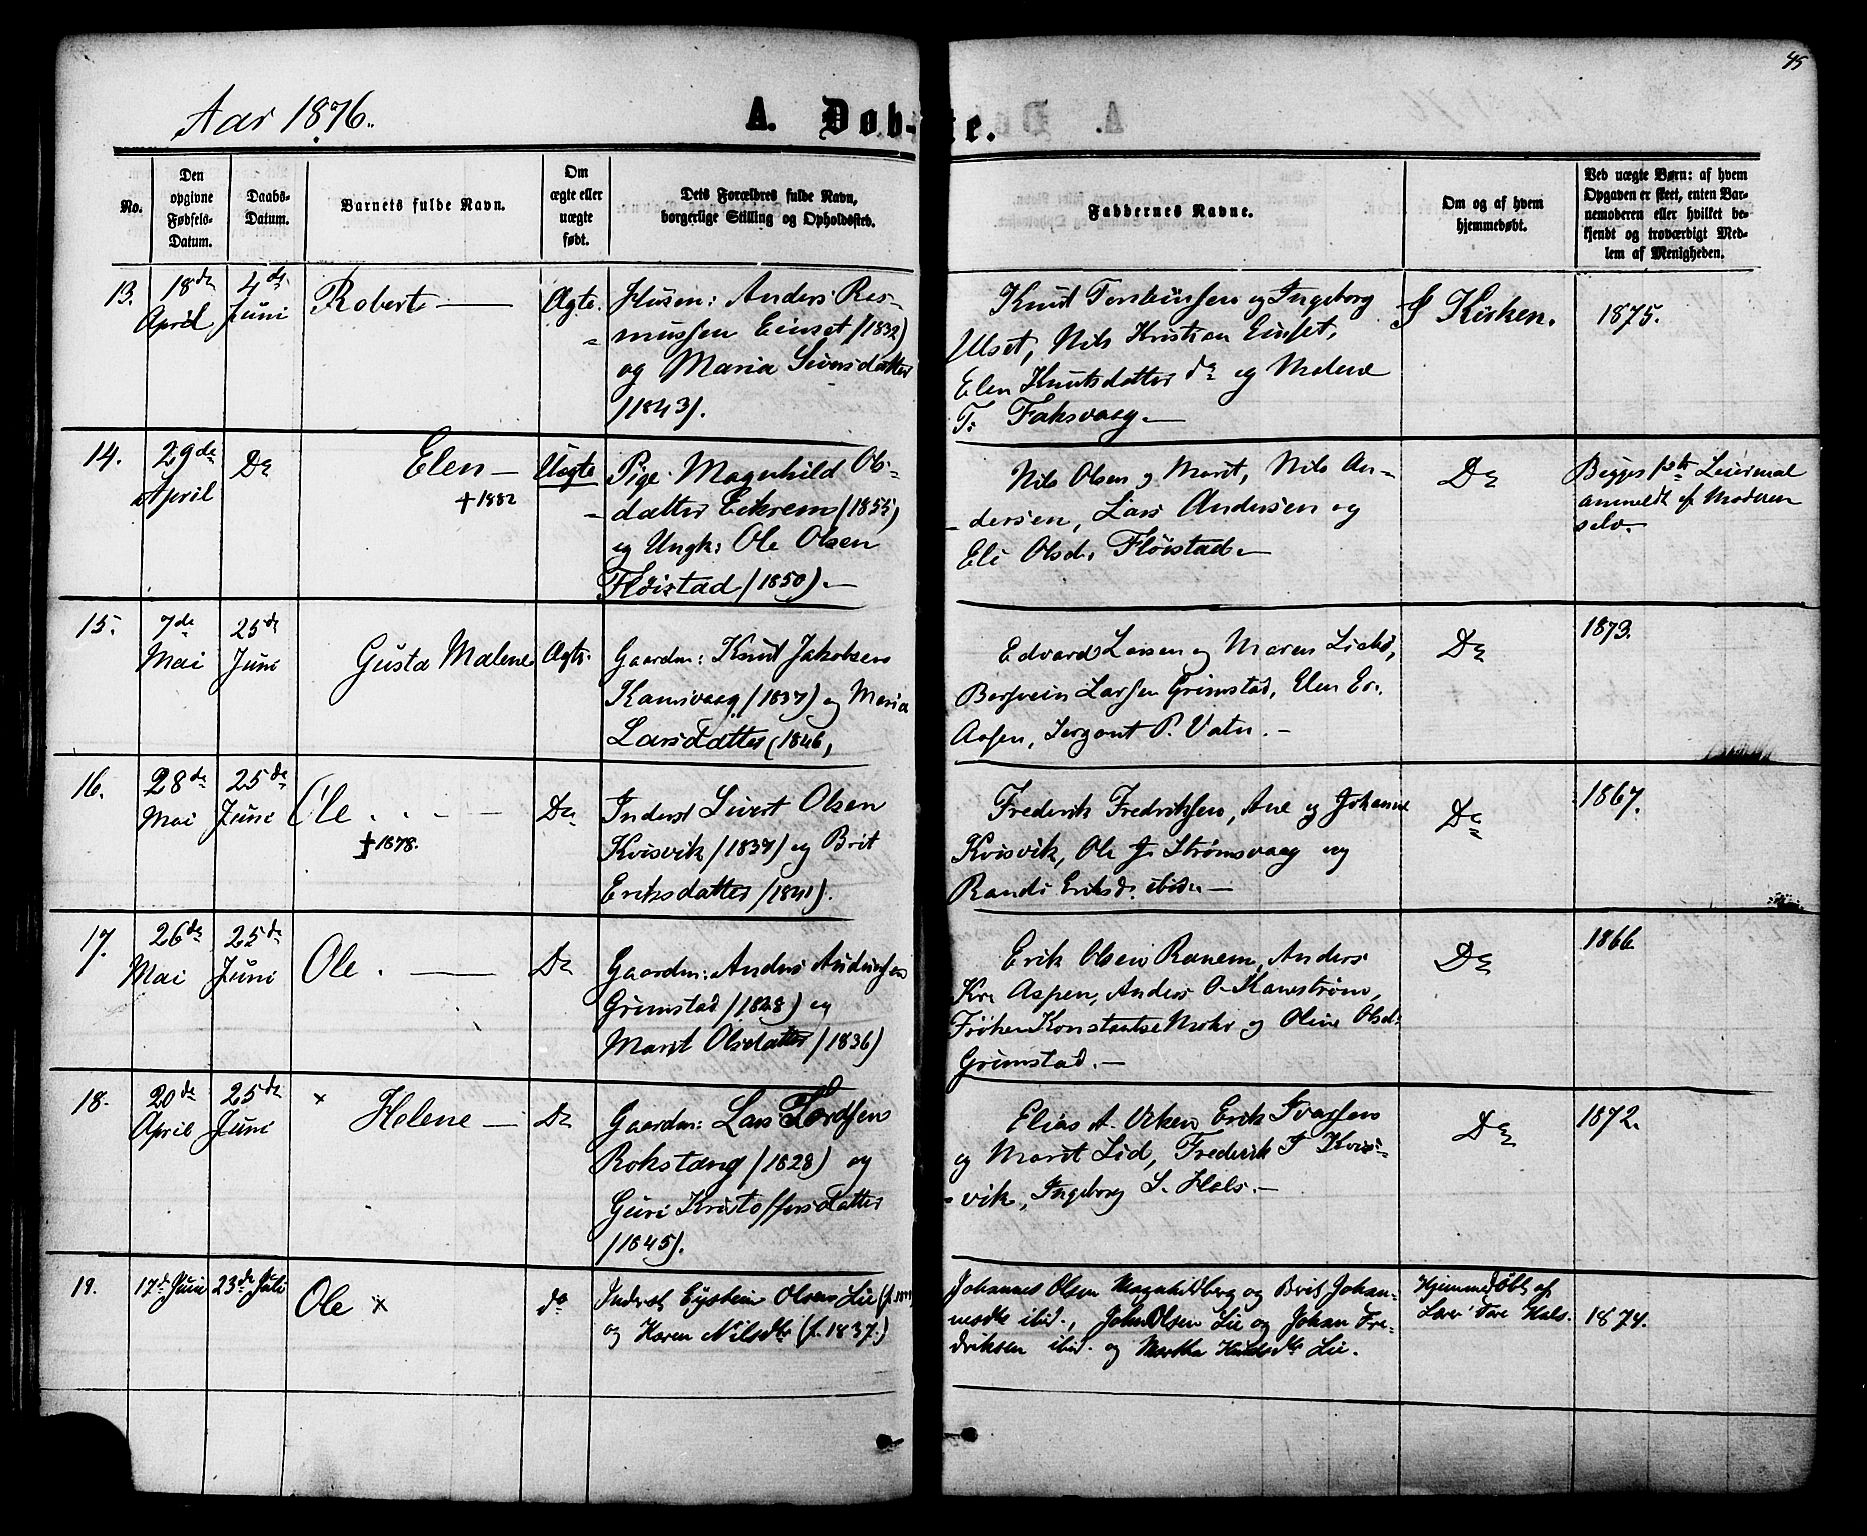 45
Aar 1876.
A. Døb-te.
No.
Den
opgivne
Fødsels-
Datum.
Daabs-
Datum.
Barnets fulde Navn.
Om
ægte eller
uægte
født.
Dets Forældres fulde Navn,
borgerlige Stilling og Opholdssted.
Faddernes Navne.
Om og af hvem
hjemmedøbt.
Ved uægte Børn: af hvem
Opgaven er skeet, enten Bar-
nemoderen eller hvilket be-
kjendt og troværdigt Med-
lem af Menigheden.
13.
18de
April
4de
Juni
Roberte
Ægte.
Husm: Anders Ras-
mussen Einset (1832)
og Maria Siversdatter
(1843).
Knud Torsteinsen og Ingeborg
Ulset, Nils Kristian Einset,
Elen Knutsdatter do og Malene
T. Foksvaag
I Kirken.
1875.
14.
29de
April
Do
Elen
† 1882
Uægte
Pige Magnhild Ols-
datter Eikrem (1855)
og Ungk: Ole Olsen
Fløistad (1850).
Nils Olsen og Marit, Nils An-
dersen, Lars Andersen og
Eli Olsd. Fløistad
Do
Begges 1ste Leiermaal
anmeldt af Moderen
selv.
15.
7de
Mai
25de
Juni
Gusta Malene
Ægte.
Gaardm: Knud Jakobsen
Ramsvaag (1837) og Maria
Larsdatter (1846)
Edvard Larsen og Maren
Bersvein Larsen Grimstad, Elen Er.
Aspen, Sergant P. Vatn.
Do
1873.
16.
28de
Mai
25de
Juni
Ole
† 1878.
Do
Inderst Sivert Olsen
Kvisvik (1837) og Brit
Eriksdatter (1841).
Frederik Fredriksen, Ane og Johanne
Kvisvik, Ole J. Strømsvaag og
Randi Eriksd. ibid.
Do
1867.
17.
26de
Mai
25de
Juni
Ole
Do
Gaardm: Anders Andersen
Grimstad (1828) og
Marit Olsdatter (1836)
Erik Olsen Ranem, Anders
Kr. Aspen, Anders O. Kanestrøm,
Frøken Konstantse Mohr og Oline Olsd.
Grimstad.
Do
1866
18.
20de
April
25de
Juni
× Helene
Do
Gaardm: Lars Tordsen
Rokstang (1828) og
Guri Kristoffersdatter
(1845).
Elias A. Viken Erik Ivarsen
og Marit Lid, Frederik I Kvis-
vik, Ingeborg S. Hals.
Do
1872.
19.
17de Juni
23de Juli
Ole ×
do
Inderst Eystein Olsen Lie
og Karen Nilsdtr (f. 1837.)
Johannes Olsen Magnhildberg og Brit Johan-
nesdtr ibid., John Olsen Lie og Johan Fre-
driksen ibid. og Martha Lie.
Hjemmedøbt af
Lærer Tore Hals.
1874.